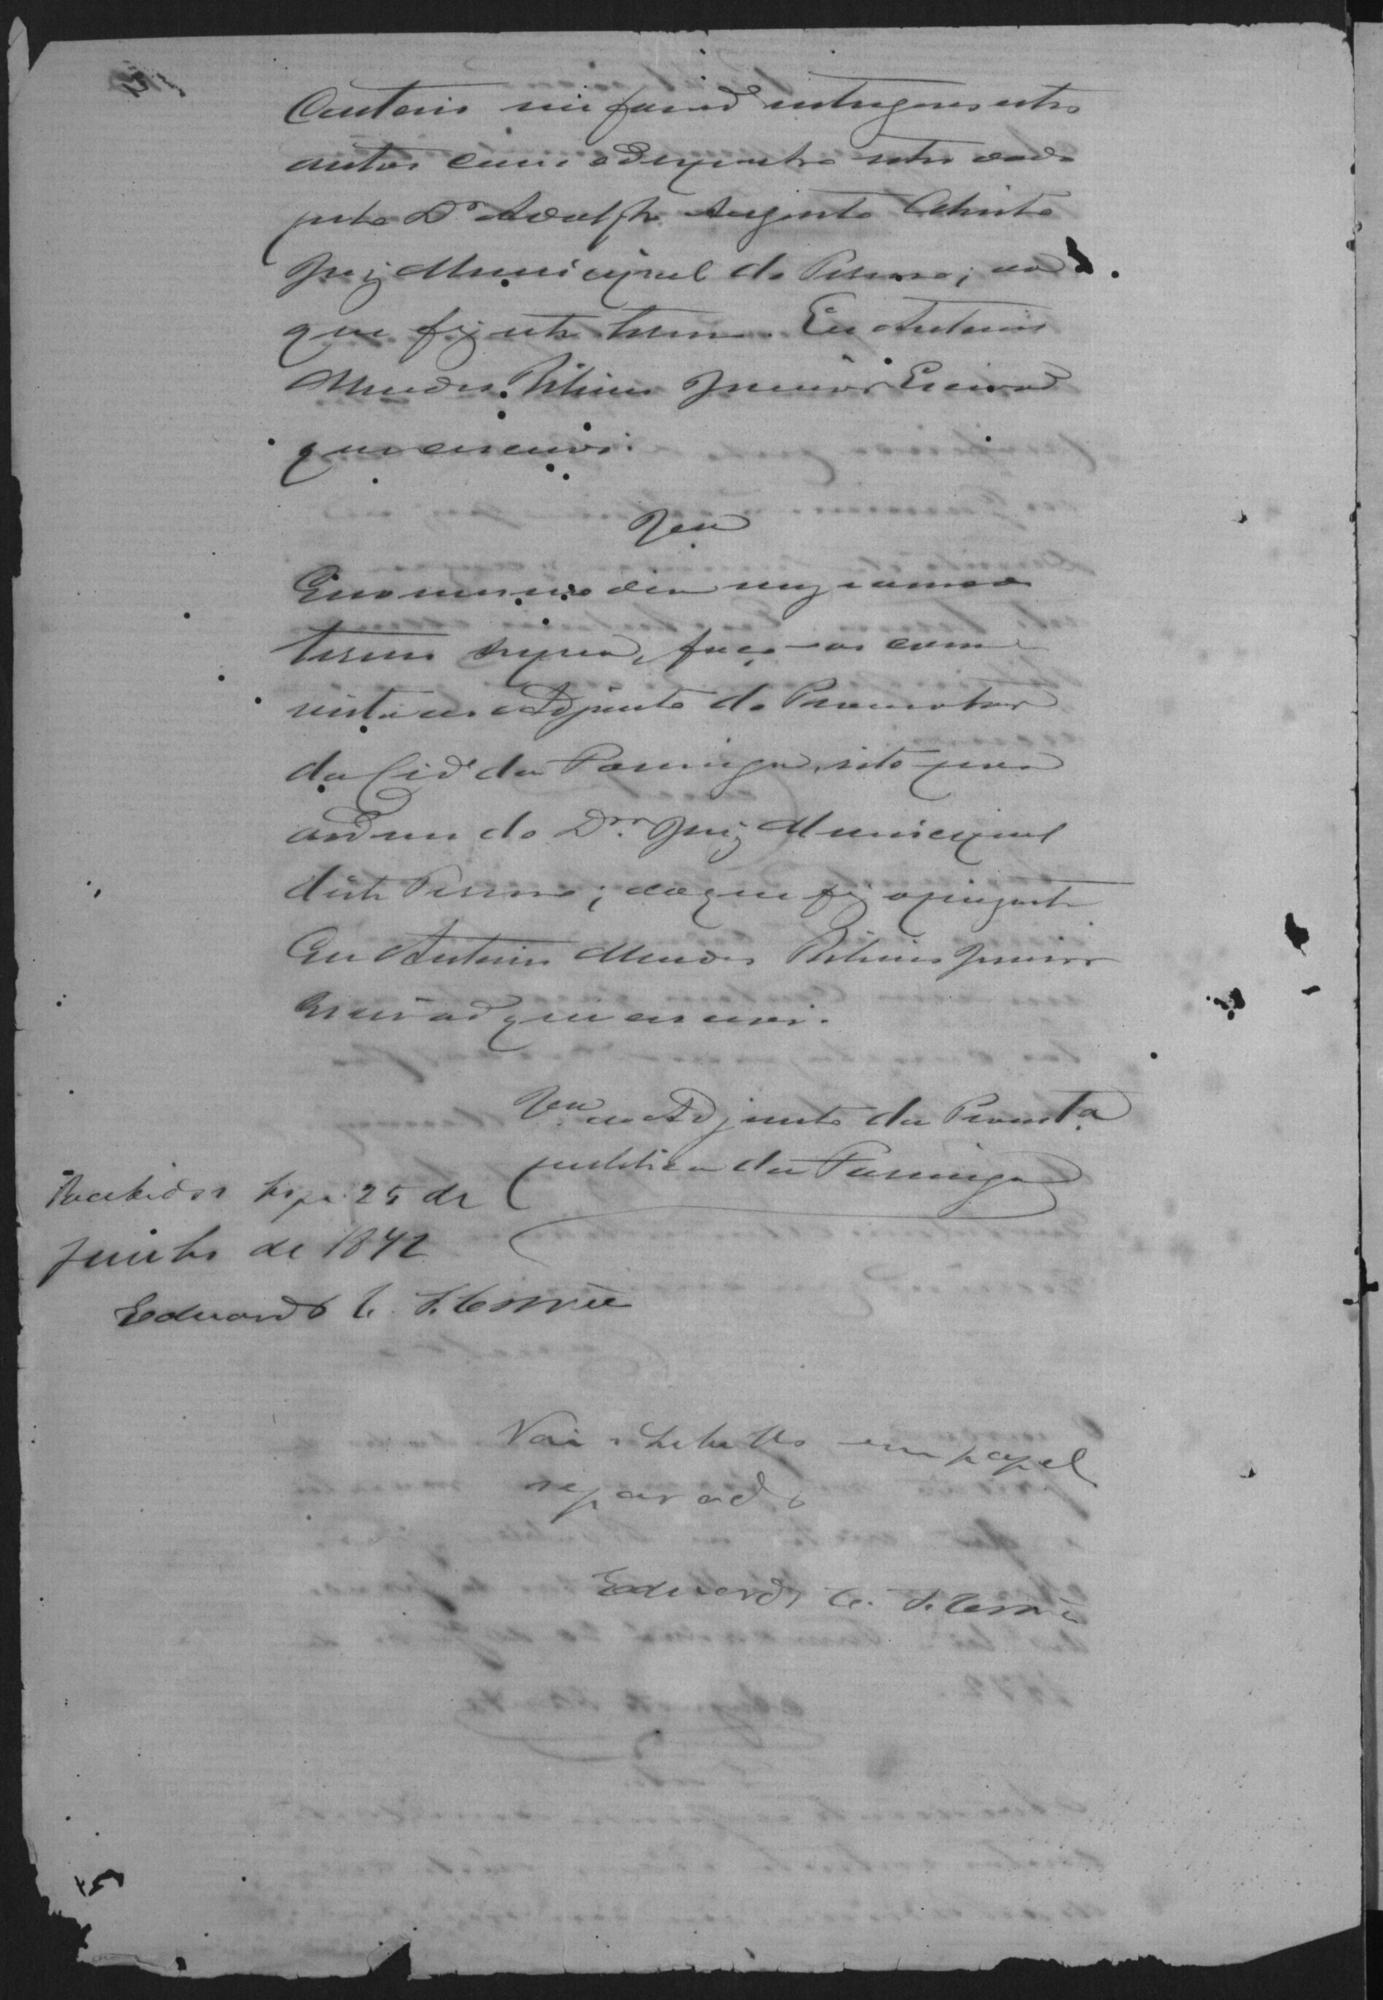 Cartorio me foraõ entregues estes
autos com o despacho retro dado
pelo Dr Adolpho Augusto Olinto
Juiz Municipal do Termo; do
que fiz este termo. Eu Antonio
Mendes Ribeiro Junior Escrivaõ
que escrevi.
Vta
E no mesmo dia mez e anno
termo supra, faço-os com
vista ao Adjunto do Promotor
da Cide da Formiga, isto por
ordem do Dr. Juiz Municipal
deste Termo; do que fiz o presente
Eu Antonio Mendes Ribeiro Junior
Escrivaõ que escrevi.
Vta ao Adjunto da Promota
publica da Formiga
Recebidos hoje 25 de
Junho de 1872
Eduardo C.
Vai o libello em papel
separado
Eduardo C.